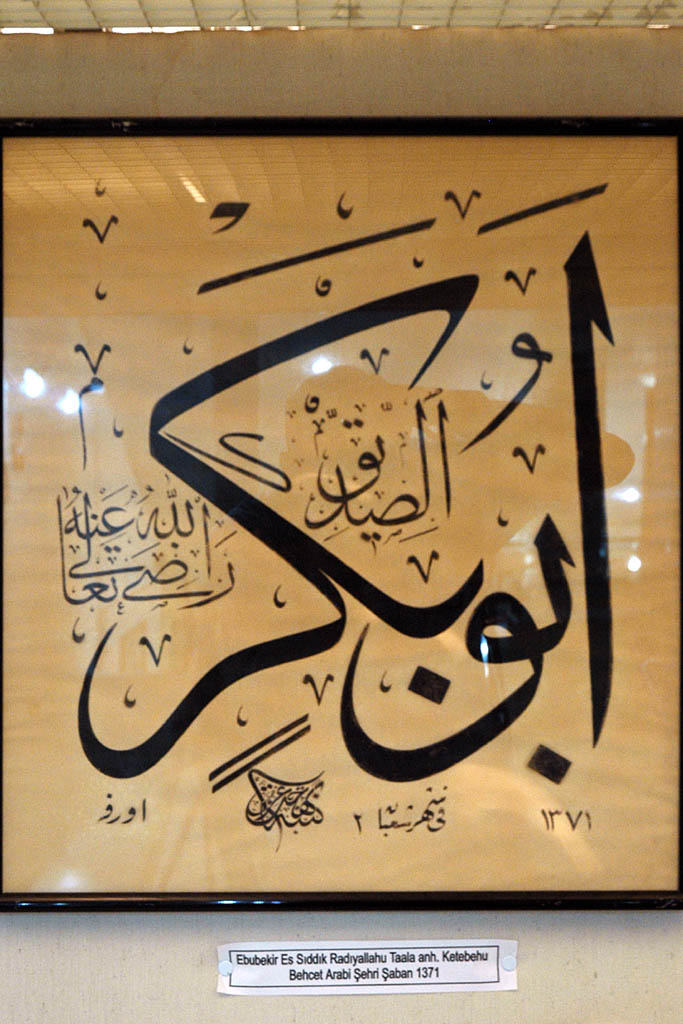 اَبُو بَكْرٍ
الصِّدِّيقُ
رَضِيَ اللّٰهُ تَعَالَى عَنْهُ
١٣٧١ فى شهر شعبان ٢ كتبه بهجت عربى اورفه
Ebubekir Es Sıddık Radıyallahu Taala anh. Ketebehu
Behcet Arabi Şehri Şaban 1371